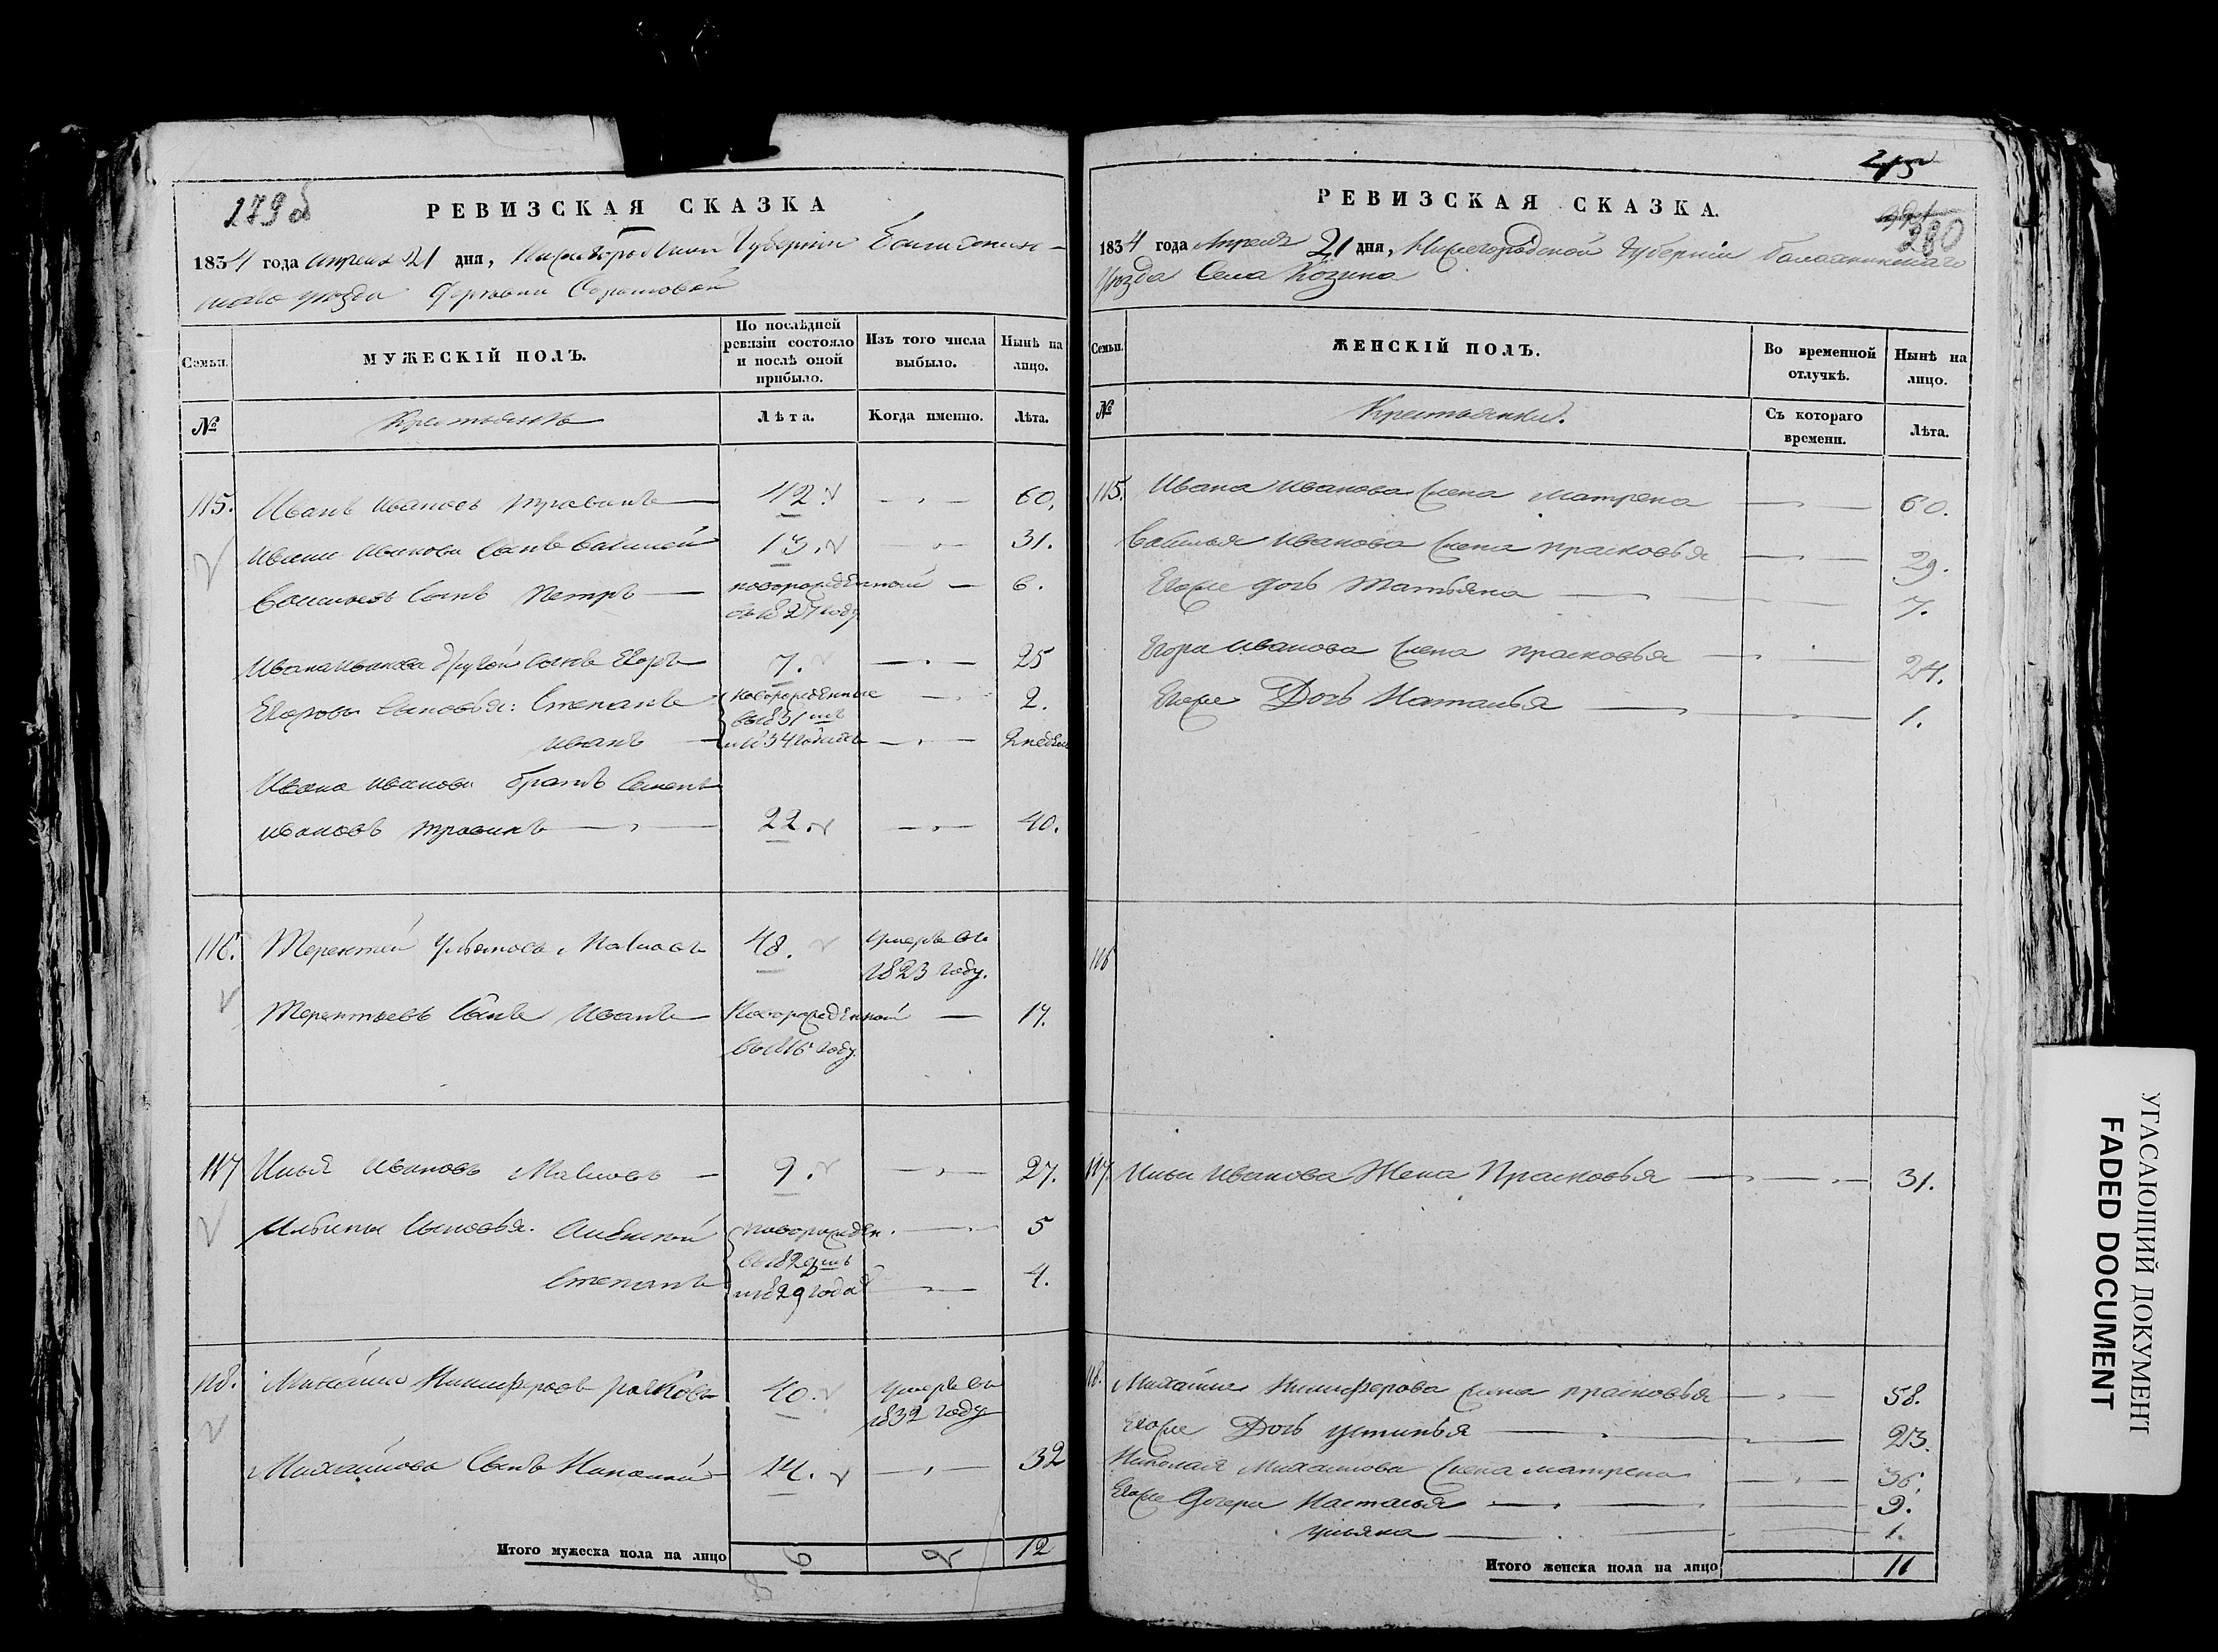 279 об
РЕВИЗСКАЯ СКАЗКА
1834 года апреля 21 дня, Нижегородской Губернии Балахнин-
скаго уезда
Семьи.
МУЖЕСКІЙ ПОЛЪ.
По послѣдней ревизіи состояло и послѣ оной прибыло.
Изъ того числа выбыло.
Нынѣ на лицо.
№
Крестьянъ
Лѣта.
Когда именно.
Лѣта.
115. Иванъ Ивановъ 42. 60.
Ивана Иванова Сынъ Василей 13. 31.
Васильевъ Сынъ Петръ новорожденной 6.
въ 1827 году
Ивана Иванова другой Сынъ Егоръ 7. 25
Егоровы Сыновья: Степанъ новорожденные 2.
въ 1831мъ
Иванъ и 1834 годахъ 2 недели
Ивана Иванова братъ Семенъ
Ивановъ 22. 40.
116. Терентей Ульяновъ 48. умеръ въ
1823 году.
Терентьевъ Сынъ Иванъ Новорожденной 17.
въ 1816 году.
117 Илья Ивановъ 9. 27.
Ильины Сыновья. Алексей новорожден. 5
въ 1828мъ
Степанъ и 1829 годах 4.
118. Михайло Никифоровъ 40. умеръ въ
1832 году
Михайлова Сынъ Николай 14. 32
Итого мужеска пола на лицо 6 2 12
8
РЕВИЗСКАЯ СКАЗКА.
280
1834 года Апреля 21 дня, Нижегородской Губерніи Балахнинскаго
Уезда Села Козина
Семьи.
ЖЕНСКІЙ ПОЛЪ.
Во временной отлучкѣ.
Нынѣ на лицо.
№
Крестьянки.
Съ котораго времени.
Лѣта.
115. Ивана Иванова жена Матрена 60.
Василья Иванова жена Прасковья 29.
Егоже дочь Татьяна 7.
Егора Иванова жена Прасковья 24.
Егоже Дочь Наталья 1.
116
117. Ильи Иванова Жена Прасковья 31.
118. Михайлы Никифорова жена Прасковья 58.
Егоже Дочь Устинья 23.
Николая Михайлова жена Матрена 36.
Егоже Дочери Настасья 9.
Ульяна 1.
Итого женска пола на лицо 11
УГАСАЮЩИЙ ДОКУМЕНТ
FADED DOCUMENT